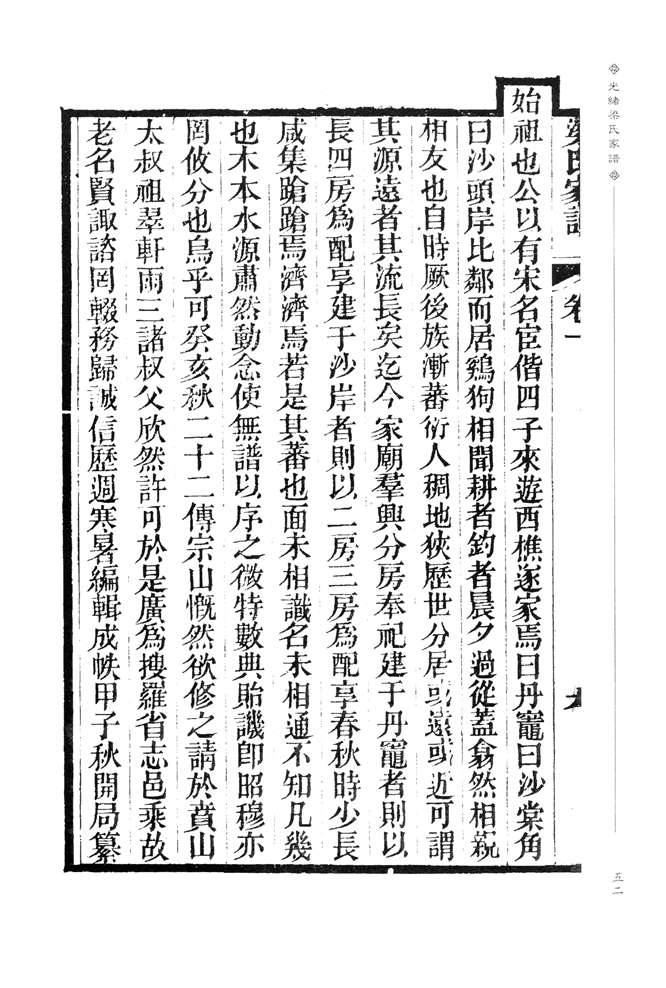 光緒梁氏家譜
梁氏家譜 卷一
始祖也公以有宋名宦偕四子來遊西樵遂家焉曰丹竈曰沙棠角
曰沙頭岸比鄰而居鷄狗相聞耕者釣者晨夕過從蓋翕然相親
相友也自時厥後族漸蕃衍人稠地狹歷世分居或遠或近可謂
其源遠者其流長矣迄今家廟羣興分房奉祀建于丹竈者則以
長四房爲配享建于沙岸者則以二房三房爲配享春秋時少長
咸集蹌蹌焉濟濟焉若是其蕃也面未相識名未相通不知凡幾
也木本水源肅然動念使無譜以序之微特數典貽譏卽昭穆亦
罔攸分也烏乎可癸亥秋二十二傳宗山慨然欲修之請於賁山
太叔祖翠軒雨三諸叔父欣然許可於是廣爲搜羅省志邑乘故
老名賢諏諮罔輟務歸誠信歷週寒暑編輯成帙甲子秋開局纂
五二